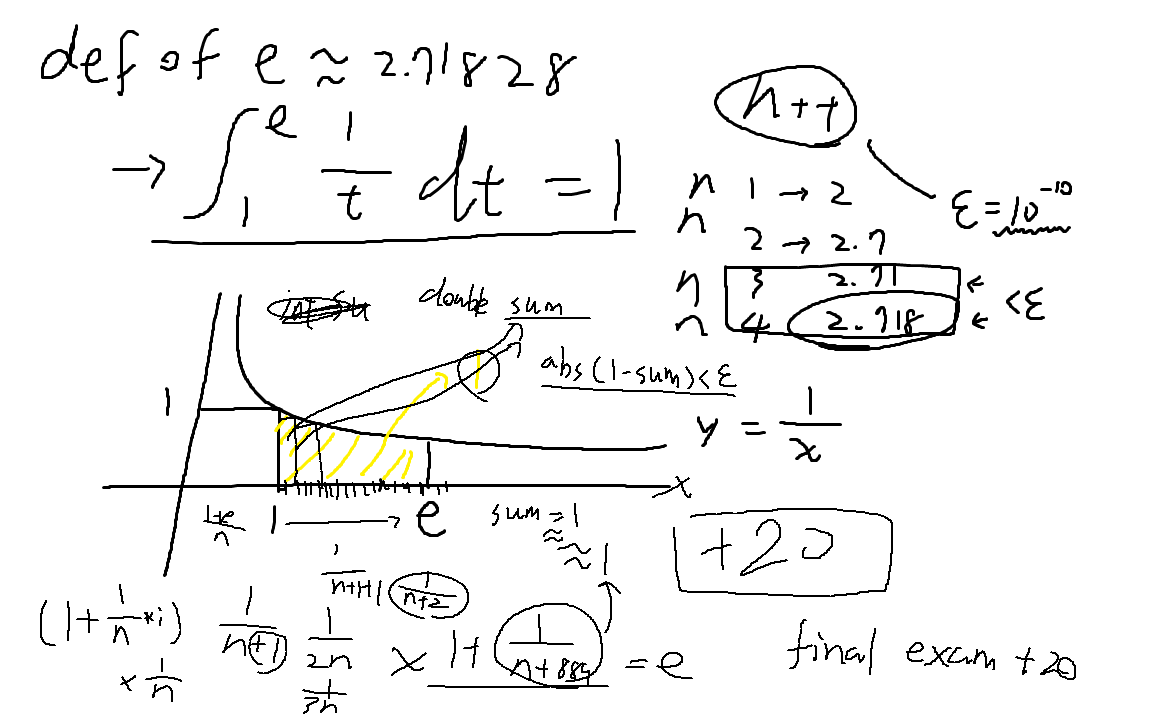 def of e ≈ 2.71828
→ ∫₁ᵉ 1/t dt = 1
n++
ε = 10⁻¹⁰
n 1 → 2
n 2 → 2.7
n 3 2.71 ←
n 4 2.718 ← <ε
double sum
abs(1-sum)<ε
1
y = 1/x
x
1 → e
sum = 1
≈
≈ 1
+20
1/(n+2)
(1 + 1/n *i)
× 1/n
1/(n+1)
1/2n
1/3n
× 1+ 1/(n+884) = e
final exam +20